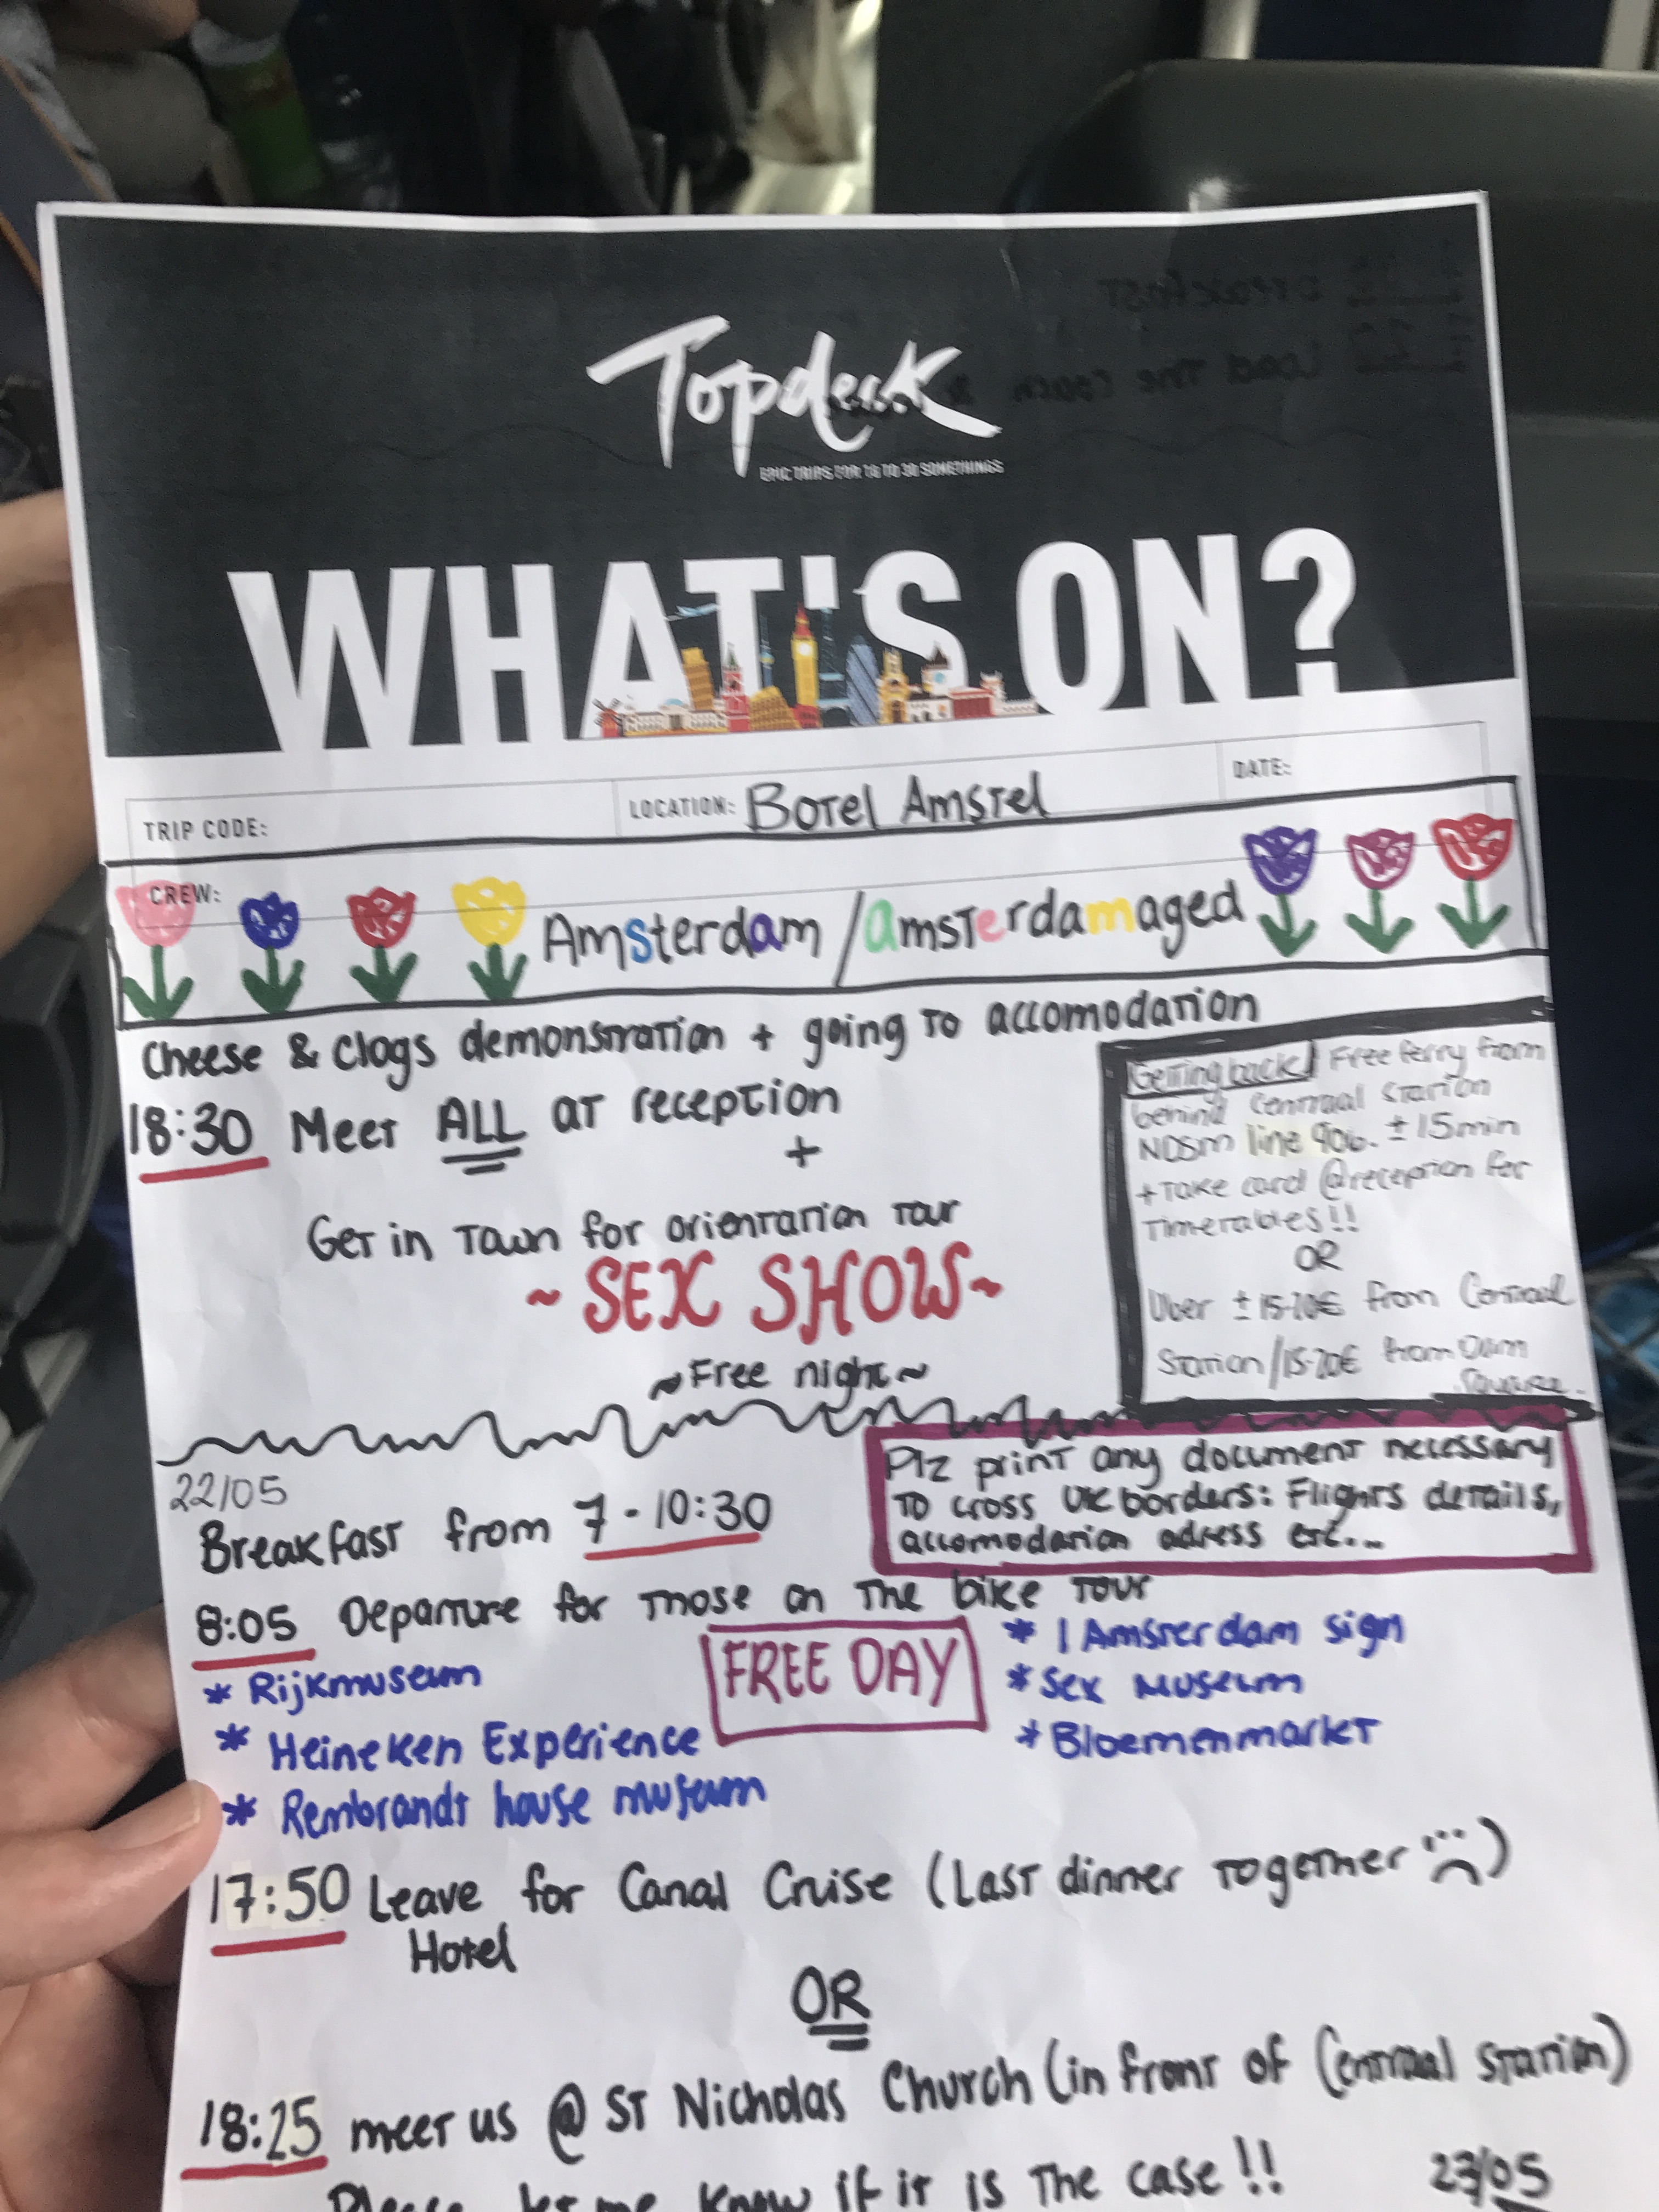 Topdeck
EPIC TRIPS FOR 18 TO 30 SOMETHINGS
WHAT'S ON?
TRIP CODE:
LOCATION: Botel Amstel
DATE:
CREW:
Amsterdam / amsterdamaged
Cheese & clogs demonstration + going to accomodation
18:30 Meet ALL at reception
+
Get in Town for orientation Tour
~ SEX SHOW ~
~ Free night ~
Getting back Free ferry from
behind Centraal Station
NDSM line 906. ± 15min
+ Take card @reception for
Timetables!!
OR
Uber ± 15-20€ from Centraal
Station/15-20€ from Dam
Square.
22/05
Breakfast from 7 - 10:30
Plz print any document necessary
TO cross UK borders: Flights details,
accomodation adress etc...
8:05 Departure for those on The bike Tour
FREE DAY
* Rijkmuseum
* Heineken Experience
* Rembrandt house museum
* I Amsterdam sign
* Sex Museum
* Bloemenmarkt
17:50 Leave for Canal Cruise (Last dinner Together ☹)
Hotel
OR
18:25 meet us @ St Nicholas Church (in front of Centraal Station)
Please let me know if it is The case!!
23/05